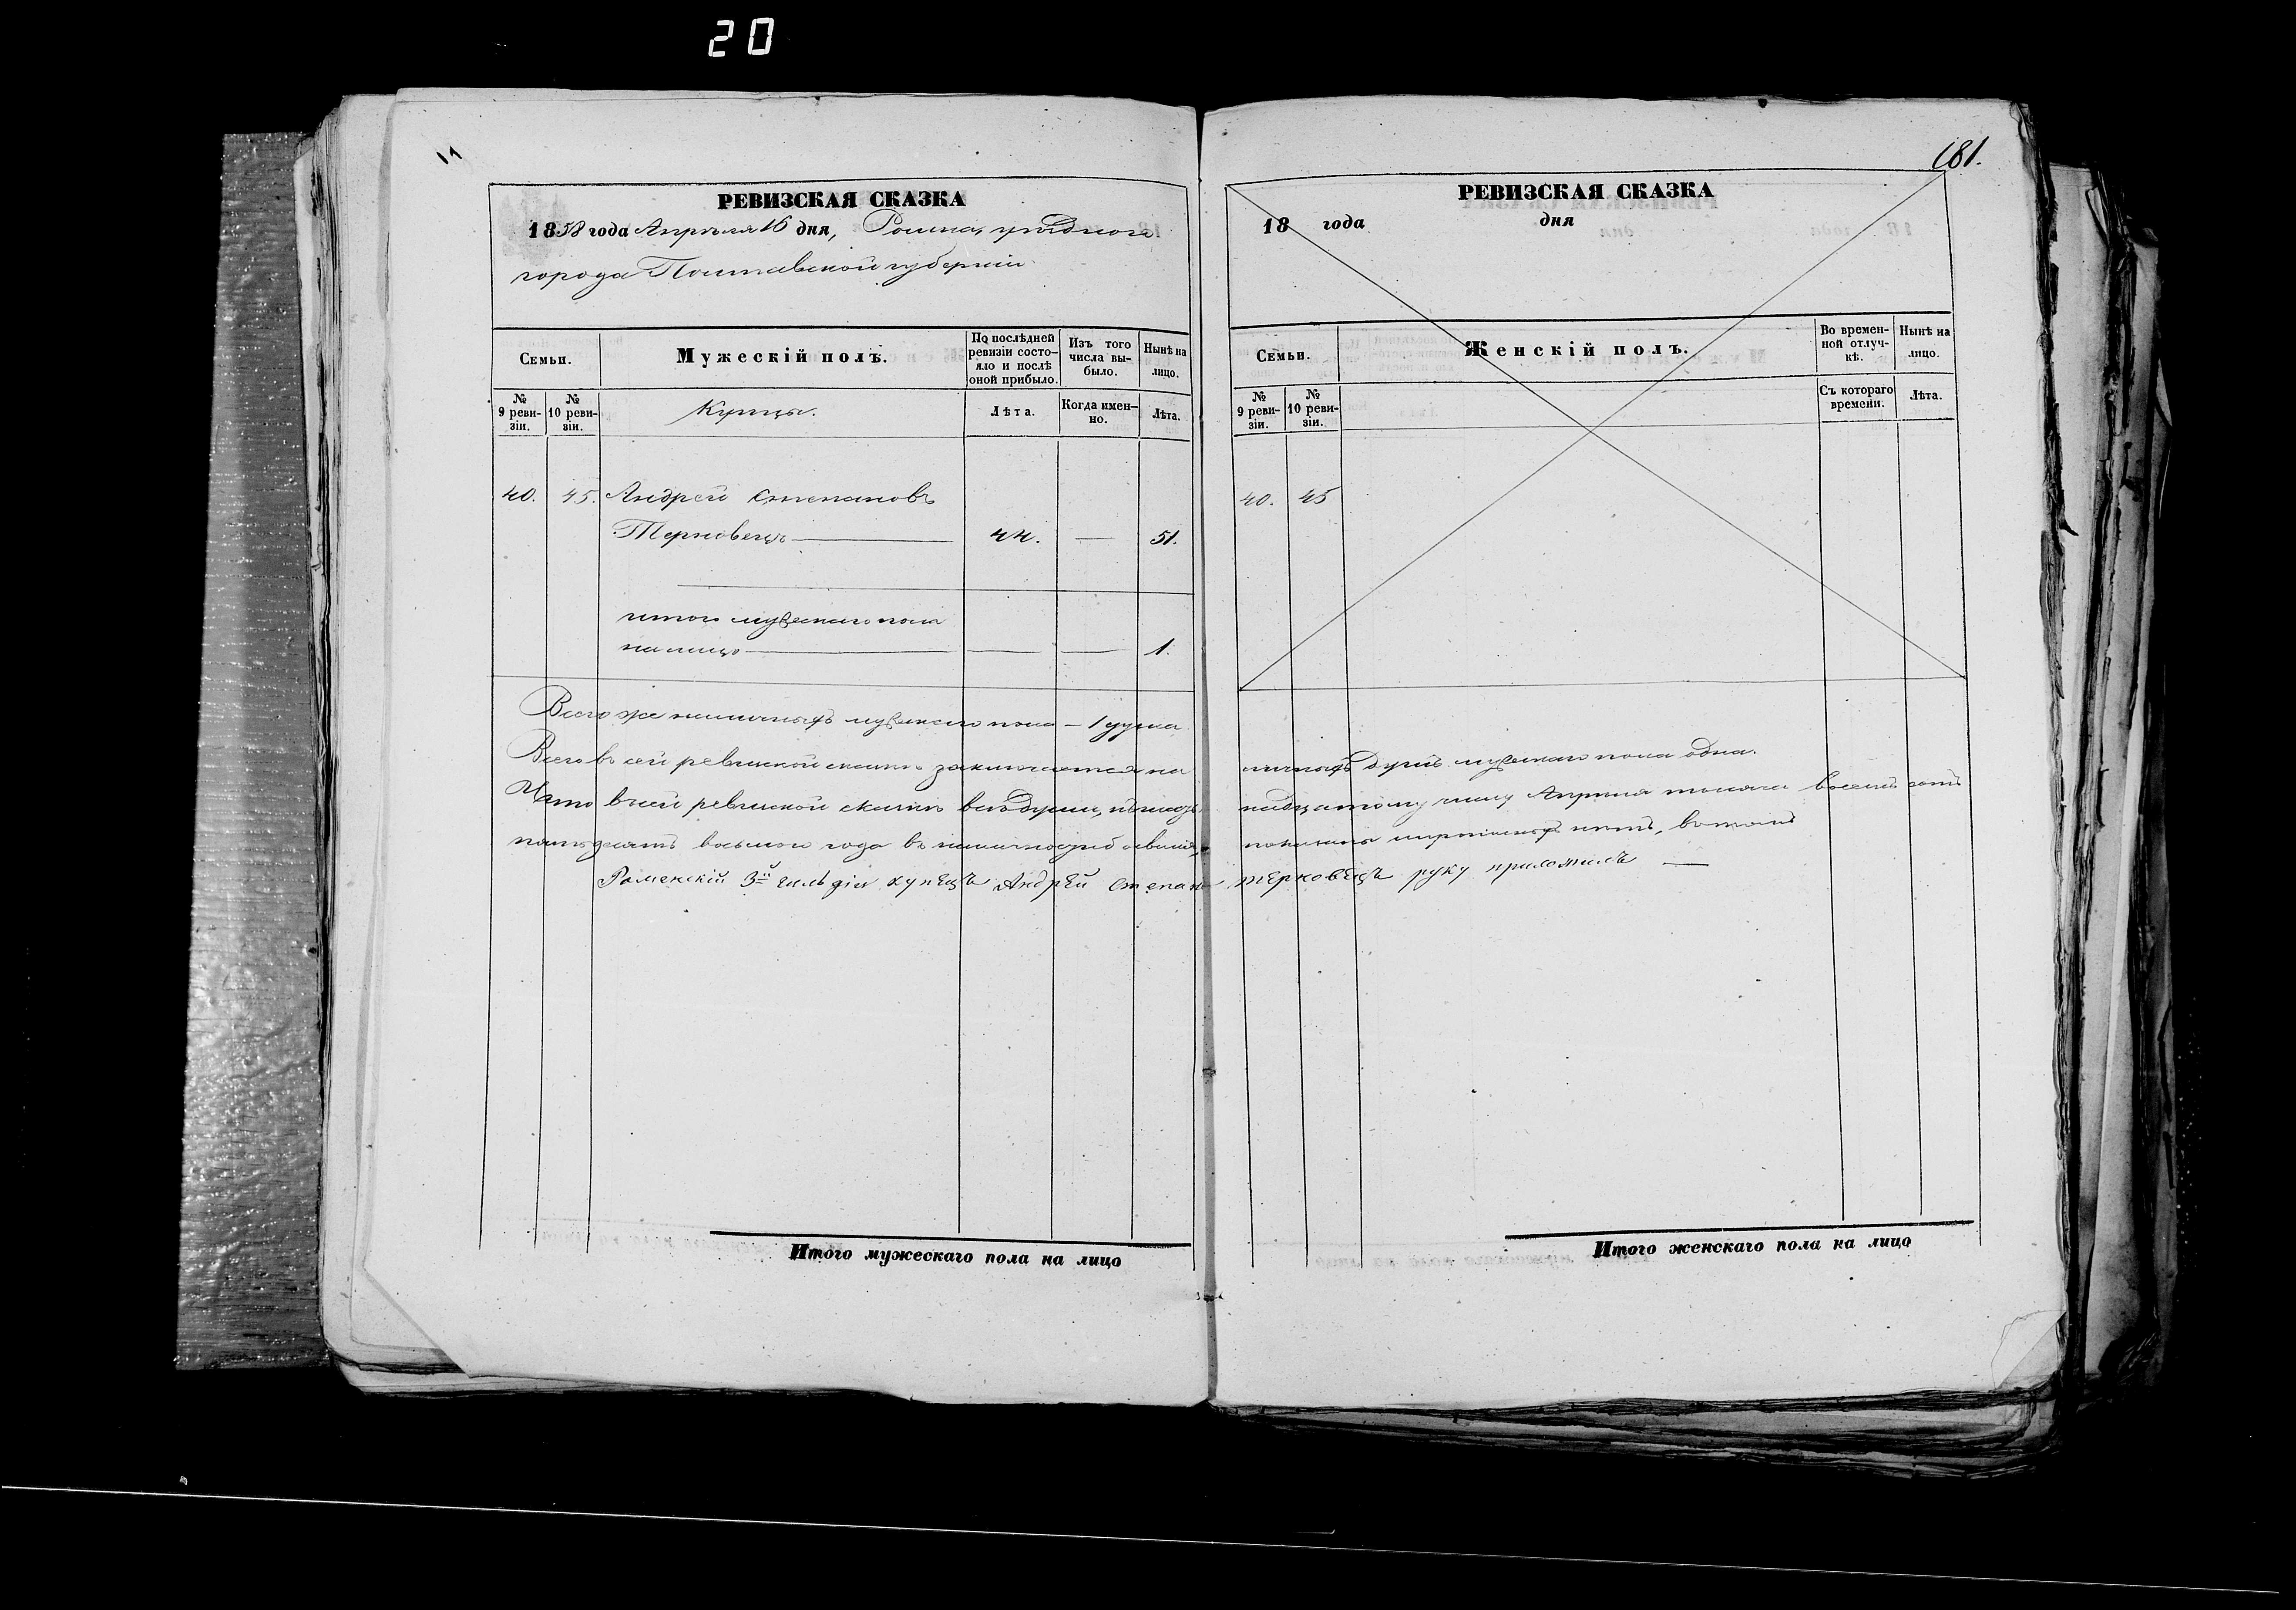 20
181.
РЕВИЗСКАЯ СКАЗКА
1858 года Апреля 16 дня, Ромна, уѣзднаго
города Полтавской губерніи
Семьи.
Мужескій полъ.
По послѣдней ревизіи состояло и послѣ оной прибыло.
Изъ того числа выбыло.
Нынѣ на лицо.
№ 9 ревизіи.
№ 10 ревизіи.
Купцы.
Лѣта.
Когда именно.
Лѣта.
40. 45. Андрей Степановъ
Терновецъ 44. — 51.
итого мужескаго пола
на лицо 1.
Всего же наличныхъ мужескаго пола — 1 душа
Всего въ сей ревизской сказкѣ заключается на
Что въ сей ревизской сказкѣ всѣ души,
пятьдесятъ восьмого года въ наличности
Роменскій 3й гильдіи купецъ Андрей Степано
Итого мужескаго пола на лицо
РЕВИЗСКАЯ СКАЗКА
18 года дня
Семьи.
Женскій полъ.
Во временной отлучкѣ.
Нынѣ на лицо.
№ 9 ревизіи.
№ 10 ревизіи.
Съ котораго времени.
Лѣта.
40. 45
личныхъ душъ мужескаго пола одна.
надцатому числу Апрѣля тысяча восемь сотъ
показаны нѣтъ, въ томъ
терновецъ руку приложилъ —
Итого женскаго пола на лицо